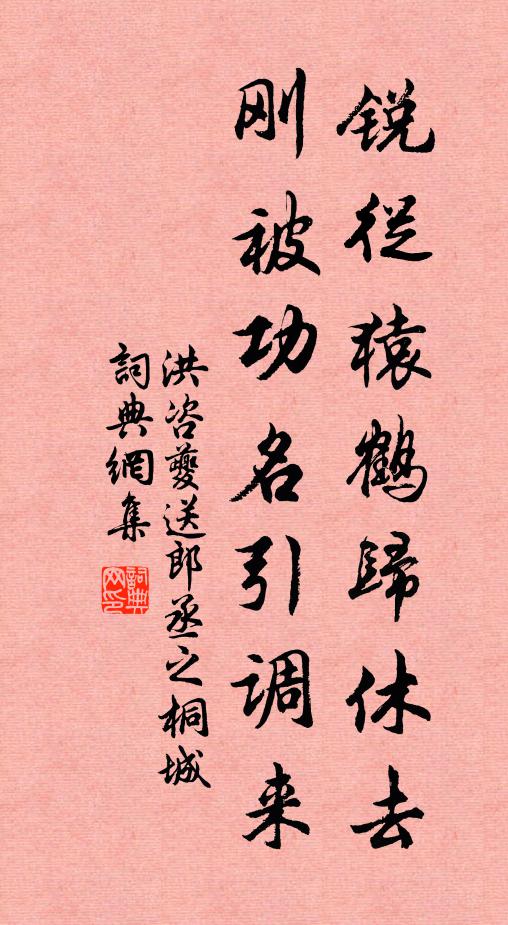 锐從猿鶴歸休去
刚被功名引调来
洪咨夔送郎丞之桐城
詞典網集
詞典网印